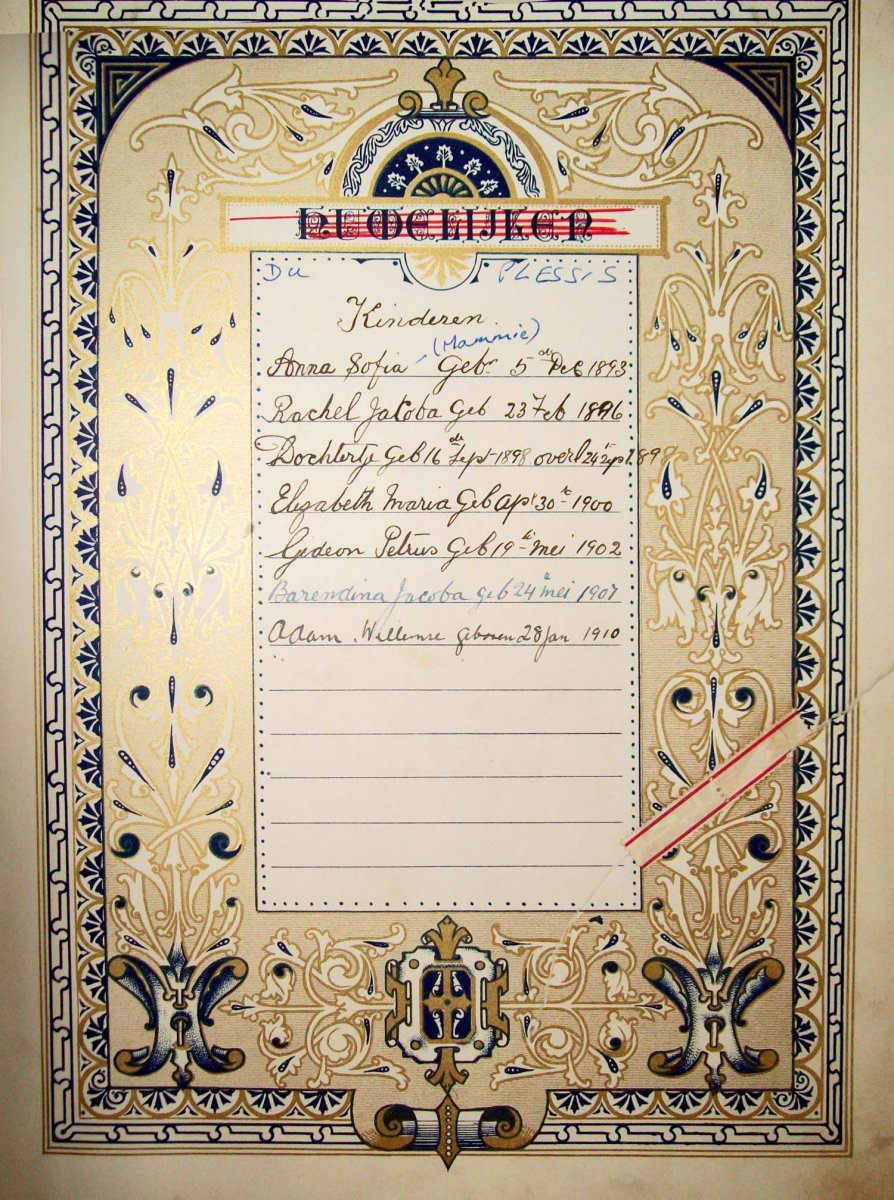 HUWELIJKEN
Du PLESSIS
Kinderen
(Mammie)
Anna Sofia Geb. 5de Dec 1893
Rachel Jacoba Geb 23 Feb 1896
Dochtertje Geb 16de Sept 1898 overl 24 Sept 1898
Elizabeth Maria Geb Apr 30te 1900
Gideon Petrus Geb 19te Mei 1902
Barendina Jacoba geb 24te Mei 1907
Adam Willemse geboren 28 Jan 1910